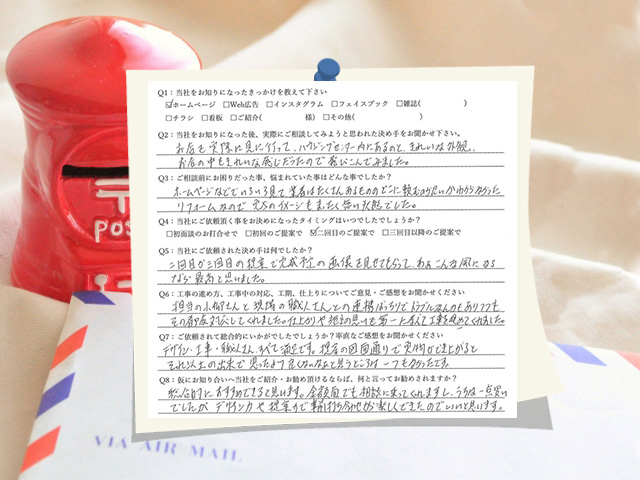 Q1：当社をお知りになったきっかけを教えて下さい
☑ホームページ　□Web広告　□インスタグラム　□フェイスブック　□雑誌(　　　)
□チラシ　□看板　□ご紹介(　　　様)　□その他(　　　)
Q2：当社をお知りになった後、実際にご相談してみようと思われた決め手をお聞かせ下さい。
お店を実際に見に行って、ハウジングセンター内にあるのと、きれいな外観、
お店の中もきれいな感じだったので飛びこんでみました。
Q3：ご相談前にお困りだった事、悩まれていた事はどんな事でしたか？
ホームページなどでいろいろ見て業者はたくさんあるもののどこに頼むのがいいかわからなかった
リフォームなので完成のイメージもまったく無い状態でした。
Q4：当社にご依頼頂く事をお決めになったタイミングはいつでしたでしょうか？
□初面談のお打合せで　□初回のご提案で　☑二回目のご提案で　□三回目以降のご提案で
Q5：当社にご依頼された決め手は何でしたか？
二回目か三回目の提案で完成予定の画像を見せてもらって、あぁこんな風になる
なら最高と思いました。
Q6：工事の進め方、工事中の対応、工期、仕上りについてご意見・ご感想をお聞かせください
担当の小柳さんと現場の職人さんとの連携ばっちりでトラブルなんかもありつつも
その都度対応してくれました。仕上がりや施主の思いを第一に考えて工事を進めてくれました。
Q7：ご依頼されて総合的にいかがでしたでしょうか？率直なご感想をお聞かせください
デザイン・工事・職人さん すべて満足です。提案の図面通りで実物が仕上がると
それ以上の出来で思ったより良くないなと思うところは一つもなかったです。
Q8：仮にお知り合いへ当社をご紹介・お勧め頂けるならば、何と言ってお勧めされますか？
総合的におすすめできると思います。金額面でも相談に乗ってくれますし、うちは一点買い
でしたがデザイン力や提案力で事前打ち合わせが楽しくできたのでいいと思います。
POS
VIA AIR MAIL